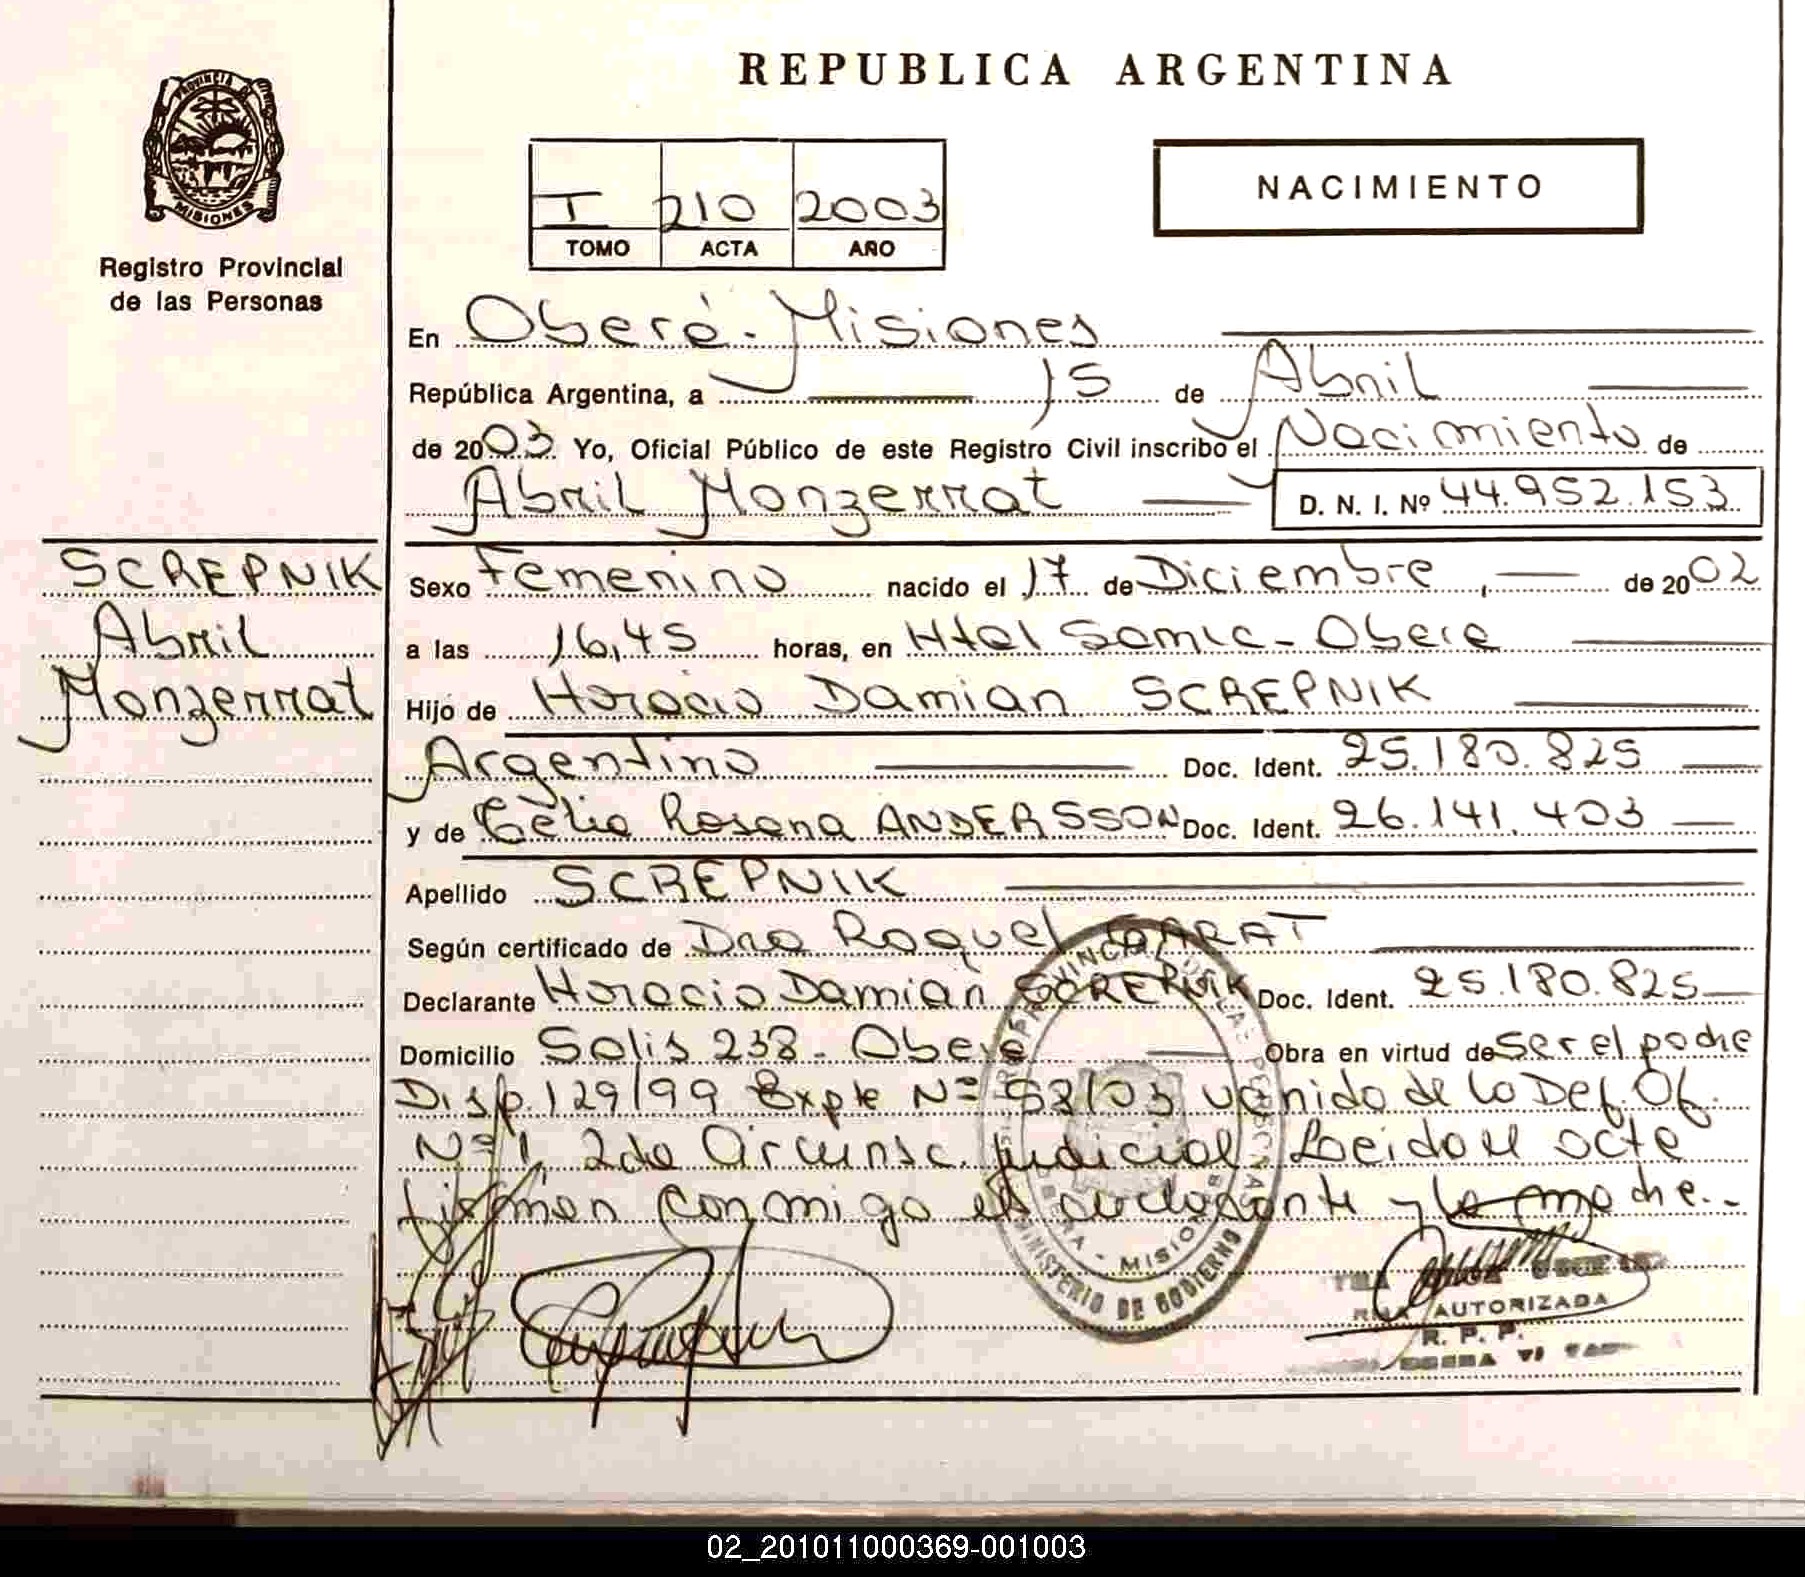 REPUBLICA ARGENTINA
PROVINCIA DE
MISIONES
Registro Provincial
de las Personas
I 210 2003
TOMO ACTA AÑO
NACIMIENTO
En Oberá - Misiones
República Argentina, a 15 de Abril
de 2003 Yo, Oficial Público de este Registro Civil inscribo el Nacimiento de
Abril Monzerrat D. N. I. Nº 44.952.153
SCREPNIK
Abril
Monzerrat
Sexo Femenino nacido el 17 de Diciembre, de 2002
a las 16,45 horas, en Htal Samic - Obera
Hijo de Horacio Damian SCREPNIK
Argentino Doc. Ident. 25.180.825
y de Celia Rosana ANDERSSON Doc. Ident. 26.141.403
Apellido SCREPNIK
Según certificado de Dra Raquel GARAT
Declarante Horacio Damian SCREPNIK Doc. Ident. 25.180.825
Domicilio Solis 238 - Obera Obra en virtud de ser el padre
Disp. 129/99 Expte Nº 58/03 venido de la Def. Of.
Nº 1, 2da Circunsc. Judicial Leida el acta
firman conmigo el declarante y la madre.-
MISIO
MINISTERIO DE GOBIERNO
AUTORIZADA
R. P. P.
02_201011000369-001003